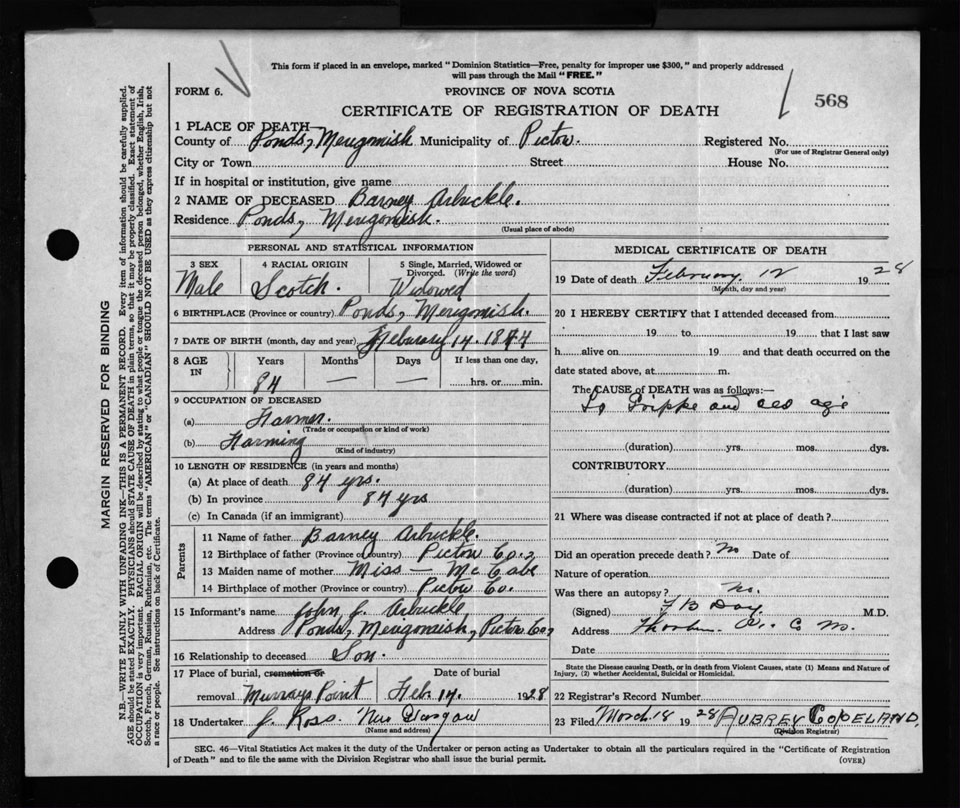 This form if placed in an envelope, marked "Dominion Statistics—Free, penalty for improper use $300," and properly addressed
will pass through the Mail "FREE."
FORM 6.
PROVINCE OF NOVA SCOTIA
568
CERTIFICATE OF REGISTRATION OF DEATH
1 PLACE OF DEATH—
County of Ponds, Merigomish Municipality of Pictou. Registered No.
(For use of Registrar General only)
City or Town Street House No.
If in hospital or institution, give name
2 NAME OF DECEASED Barney Arbuckle.
Residence Ponds, Merigomish.
(Usual place of abode)
PERSONAL AND STATISTICAL INFORMATION
3 SEX 4 RACIAL ORIGIN 5 Single, Married, Widowed or
Divorced. (Write the word)
Male Scotch. Widowed
6 BIRTHPLACE (Province or country) Ponds, Merigomish.
7 DATE OF BIRTH (month, day and year) February 14. 1844
8 AGE IN Years Months Days If less than one day,
84 — — hrs. or min.
9 OCCUPATION OF DECEASED
(a) Farmer
(Trade or occupation or kind of work)
(b) Farming
(Kind of industry)
10 LENGTH OF RESIDENCE (in years and months)
(a) At place of death 84 yrs.
(b) In province 84 yrs
(c) In Canada (if an immigrant)
Parents
11 Name of father Barney Arbuckle.
12 Birthplace of father (Province or country) Pictou Co.,
13 Maiden name of mother Miss — McCabe
14 Birthplace of mother (Province or country) Pictou Co.
15 Informant's name John J. Arbuckle
Address Ponds, Merigomish, Pictou Co,
16 Relationship to deceased Son.
17 Place of burial, cremation or Date of burial
removal Murrays Point Feb. 14. 1928
18 Undertaker J. Ross. New Glasgow
(Name and address)
MEDICAL CERTIFICATE OF DEATH
19 Date of death February 12 1928
(Month, day and year)
20 I HEREBY CERTIFY that I attended deceased from
19 to 19 that I last saw
h alive on 19 and that death occurred on the
date stated above, at m.
The CAUSE of DEATH was as follows:—
La Grippe and old age
(duration) yrs. mos. dys.
CONTRIBUTORY
(duration) yrs. mos. dys.
21 Where was disease contracted if not at place of death?
Did an operation precede death? No Date of
Nature of operation
Was there an autopsy? No.
(Signed) Day M.D.
Address Thorburn
Date
State the Disease causing Death, or in death from Violent Causes, state (1) Means and Nature of
Injury, (2) whether Accidental, Suicidal or Homicidal.
22 Registrar's Record Number
23 Filed March 18 1928 AUBREY COPELAND,
(Division Registrar)
SEC. 46—Vital Statistics Act makes it the duty of the Undertaker or person acting as Undertaker to obtain all the particulars required in the "Certificate of Registration
of Death" and to file the same with the Division Registrar who shall issue the burial permit.
(OVER)
MARGIN RESERVED FOR BINDING
N.B.—WRITE PLAINLY WITH UNFADING INK—THIS IS A PERMANENT RECORD. Every item of information should be carefully supplied.
AGE should be stated EXACTLY. PHYSICIANS should STATE CAUSE OF DEATH in plain terms, so that it may be properly classified. Exact statement of
OCCUPATION is very important. RACIAL ORIGIN will be described by stating to what people or tongue the deceased person belonged, whether English, Irish,
Scotch, French, German, Russian, Ruthenian, etc. The terms "AMERICAN" or "CANADIAN" SHOULD NOT BE USED as they express citizenship but not
a race or people. See instructions on back of Certificate.